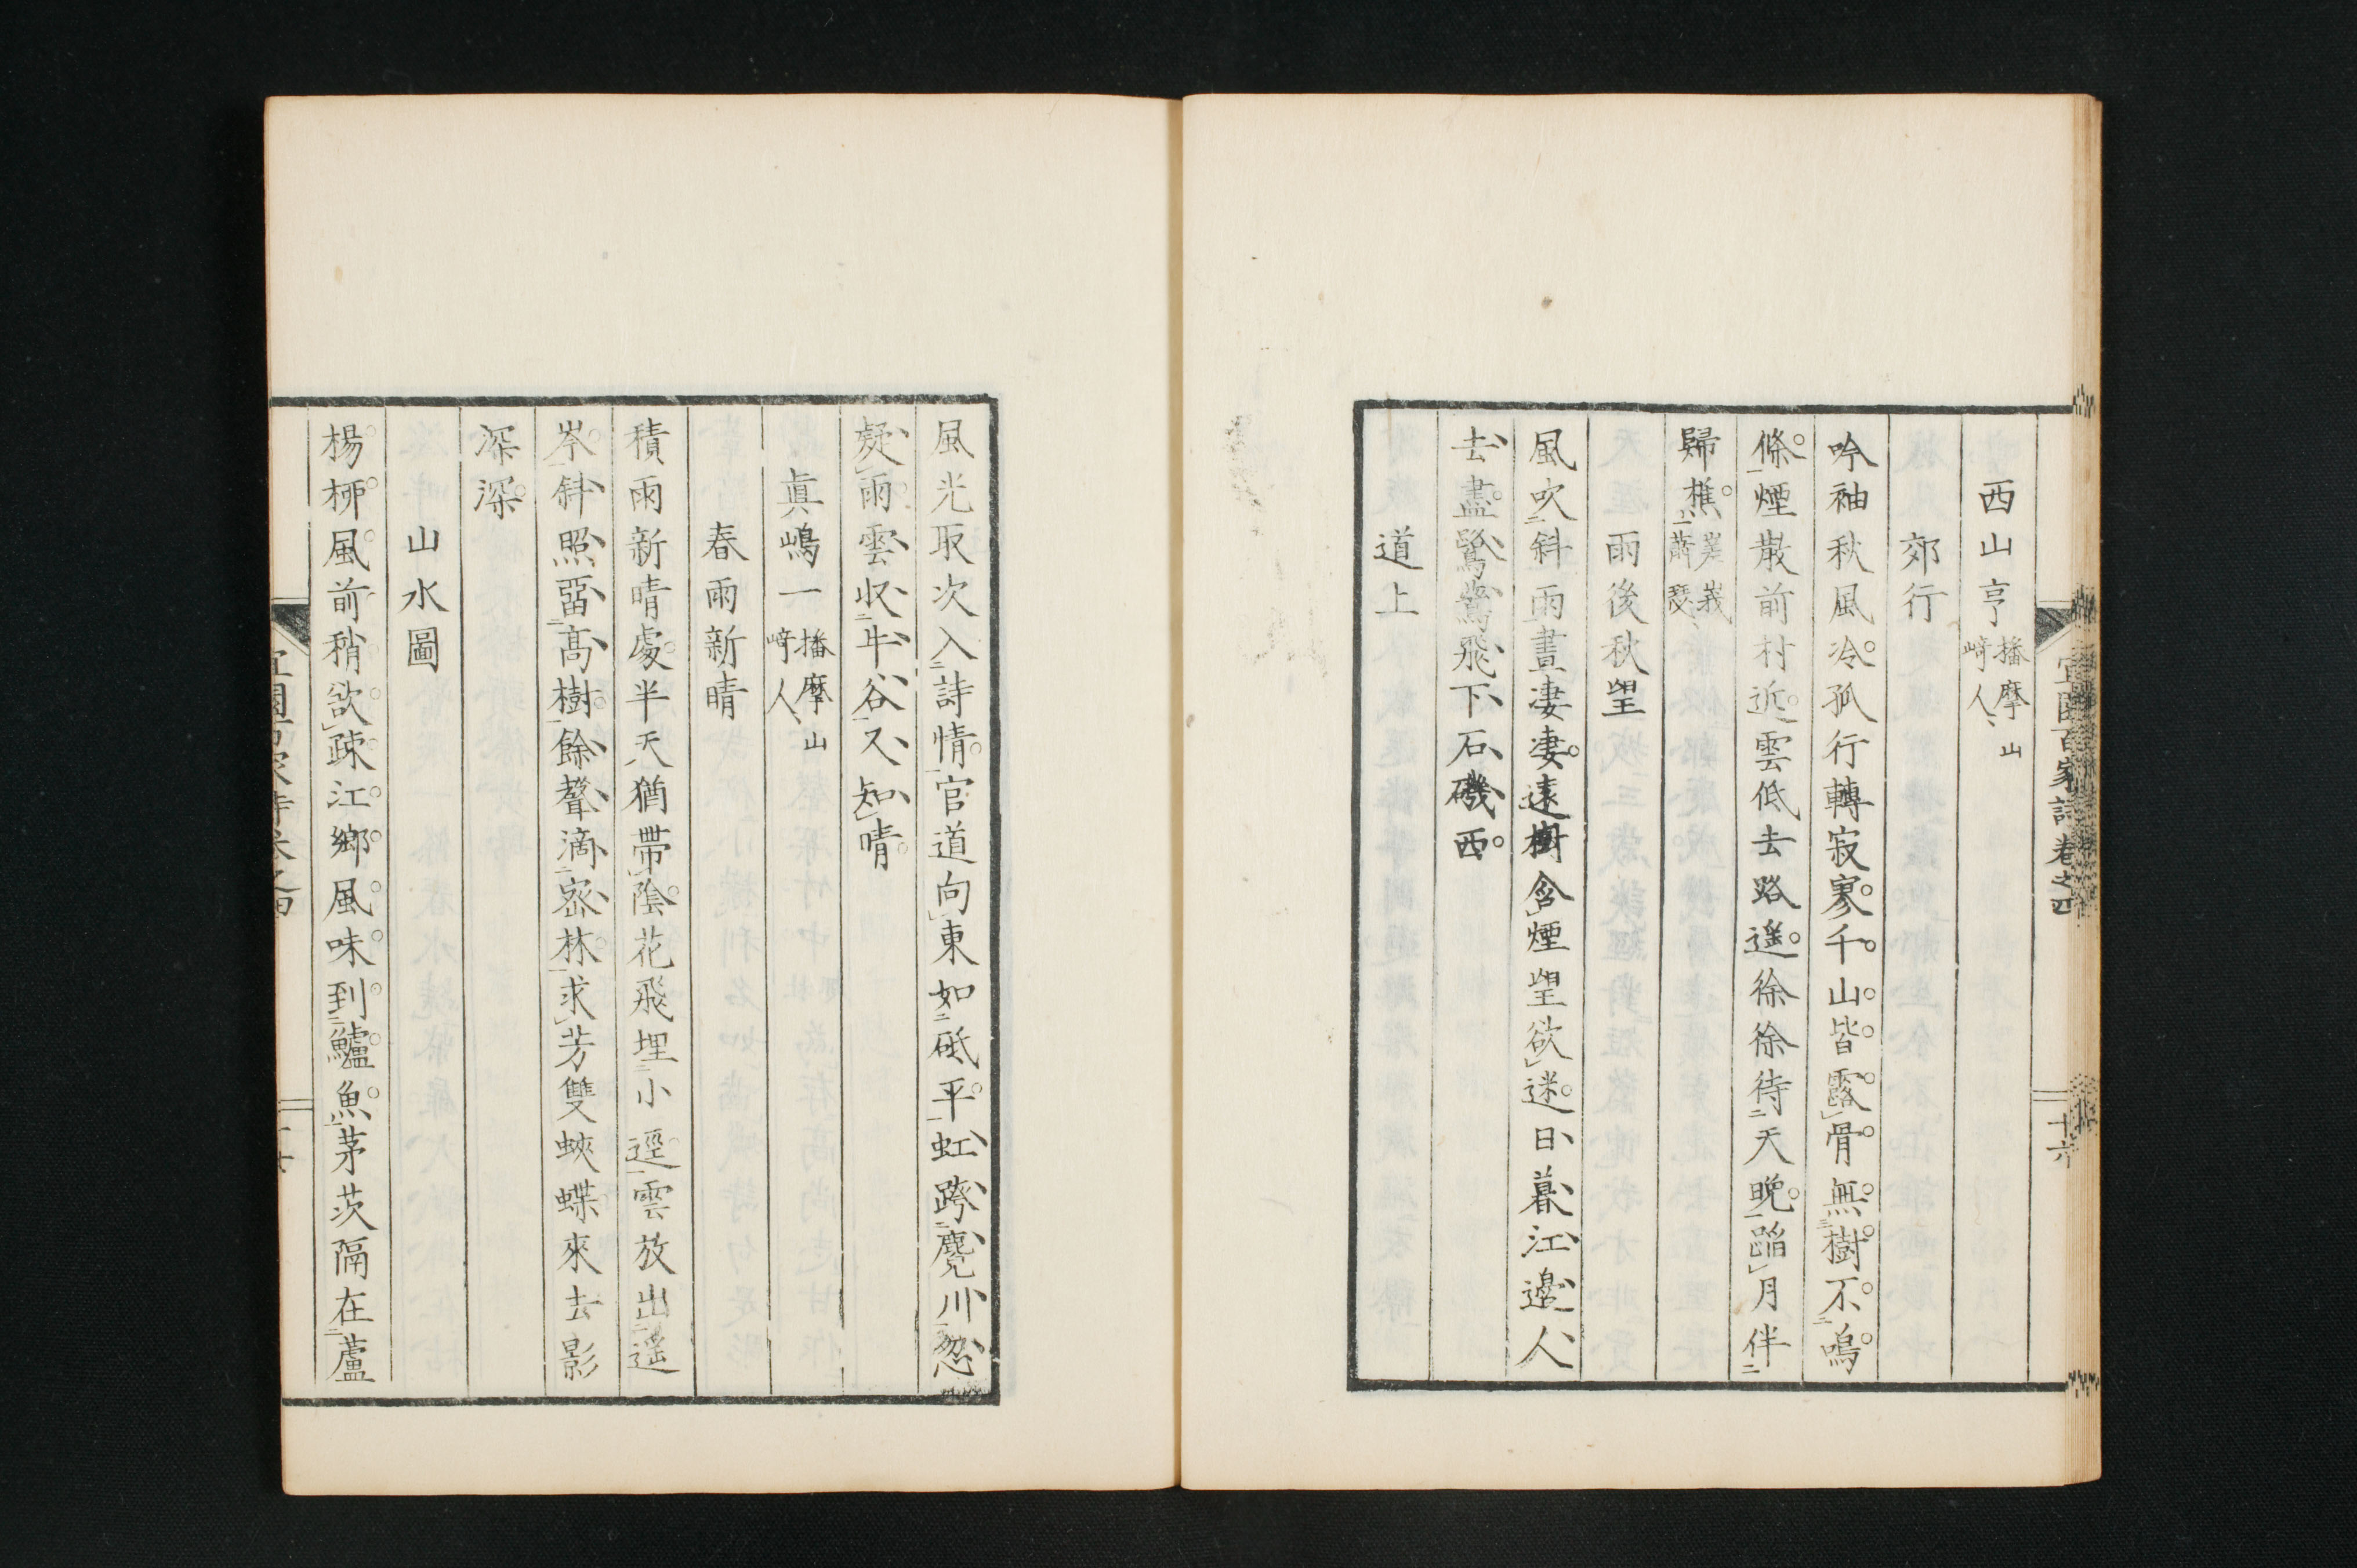 宜園百家詩卷之四
十六
西山亨 播摩山﨑人
郊行
吟袖秋風冷孤行轉寂寥千山皆露骨無樹不鳴
條煙散前村近雲低去路遙徐徐待天晚蹈月伴
歸樵
雨後秋望
風吹斜雨晝凄凄遠樹含煙望欲迷日暮江邊人
去盡驚鴦飛下石磯西
道上
風光取次入詩情官道向東如砥平虹跨麑川忽
疑雨雲収牛谷又知晴
眞嶋一 播摩山﨑人
春雨新晴
積雨新晴處半天猶帶陰花飛埋小逕雲放出遙
岑斜照畱髙樹餘聲滴密林求芳雙蛺蝶來去影
深深
山水圖
楊桺風前稍欲疎江鄉風味到鱸魚茅茨隔在蘆